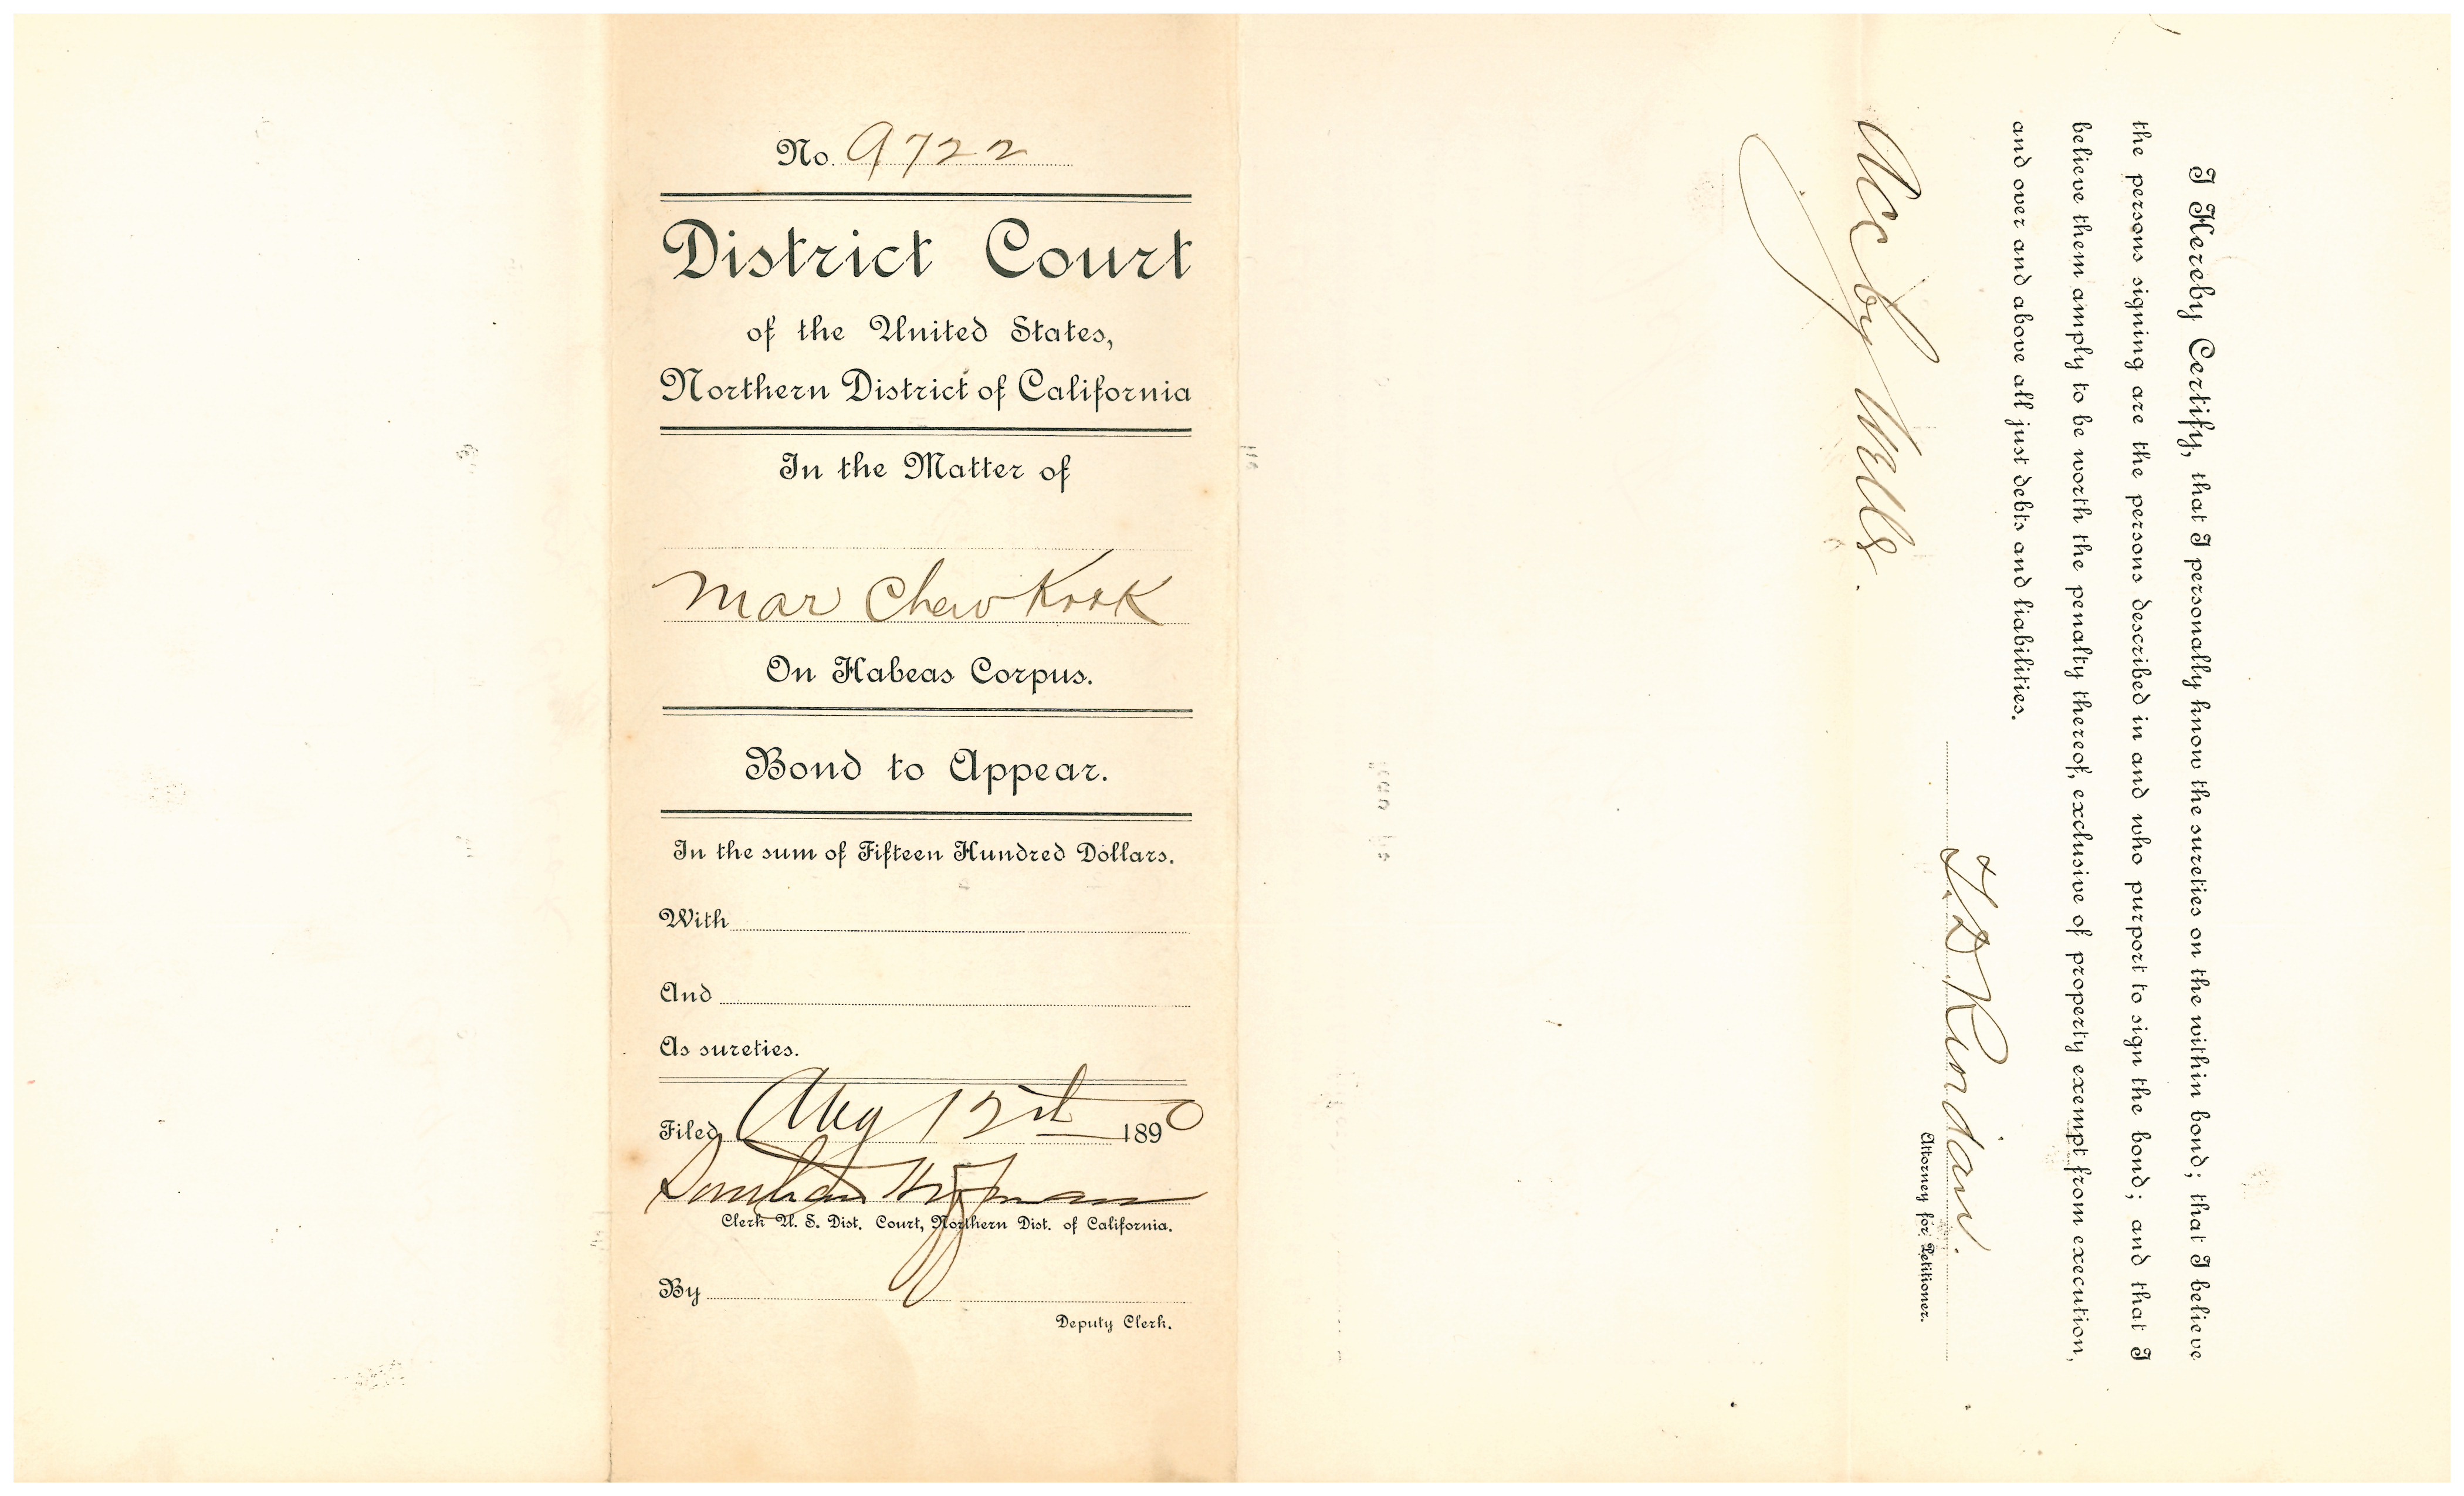 No. 9722
District Court
of the United States,
Northern District of California
In the Matter of
Mar Chew Kook
On Habeas Corpus.
Bond to Appear.
In the sum of Fifteen Hundred Dollars.
With
And
As sureties.
Filed Aug 12th 1890
Southard Hoffman
Clerk U. S. Dist. Court, Northern Dist. of California.
By
Deputy Clerk.
I Hereby Certify, that I personally know the sureties on the within bond; that I believe
the persons signing are the persons described in and who purport to sign the bond; and that I
believe them amply to be worth the penalty thereof, exclusive of property exempt from execution,
and over and above all just debts and liabilities.
T D Riordan.
Attorney for Petitioner.
by Wells.